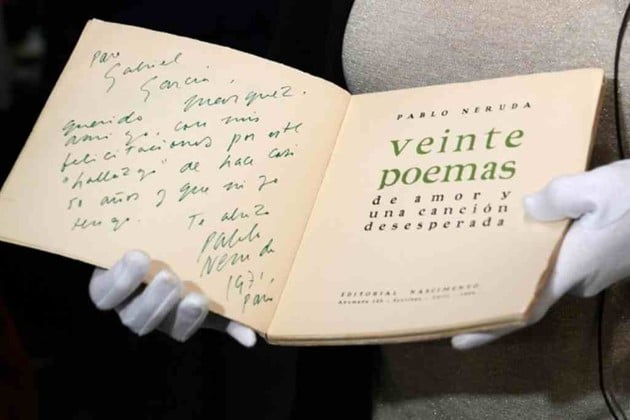 para
Gabriel
García
Márquez.
querido
amigo, con mis
felicitaciones por este
"hallazgo" de hace casi
50 años y que ni yo
tengo.
Te abraza
Pablo
Neruda
1971
PABLO NERUDA
veinte
poemas
de amor y
una canción
desesperada
EDITORIAL NASCIMENTO